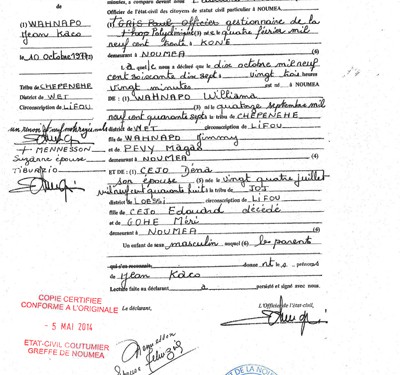 (1) WAHNAPO
Jean Kaco
le 10 octobre 1977
Tribu de CHEPENEHE
District de WET
Circonscription de LIFOU
+ MENNESSON
Suzanne épouse
TIBURZIO
minutes, a comparu devant nous
Officier de l'état-civil des citoyens de statut civil particulier à NOUMEA
Officier gestionnaire de la
né le quatre février mil
neuf cent trente à KONE
demeurant à NOUMEA (6)
qui nous a déclaré que le dix octobre mil neuf
cent soixante dix sept vingt trois heures
vingt minutes est né à NOUMEA
DE : (1) WAHNAPO William
né le quatorze septembre mil
neuf cent quarante sept à CHEPENEHE
district de WET circonscription de LIFOU
fils de WAHNAPO Jimmy
et PEVY Magas
demeurant à NOUMEA (4)
ET DE : (1) CEJO Déna
son épouse née le vingt quatre juillet
mil neuf cent quarante huit à la tribu de JOJ
district de LOESSI circonscription de LIFOU
fille de CEJO Edouard décédé
et GOHE Méri
demeurant à NOUMEA (5)
Un enfant de sexe masculin auquel (6) les parents
donne nt le s prénom s
de Jean Kaco
Lecture faite du déclarant a persisté et signé avec nous.
Le déclarant, L'Officier de l'état-civil,
COPIE CERTIFIEE
CONFORME A L'ORIGINALE
- 5 MAI 2014
ETAT-CIVIL COUTUMIER
GREFFE DE NOUMEA